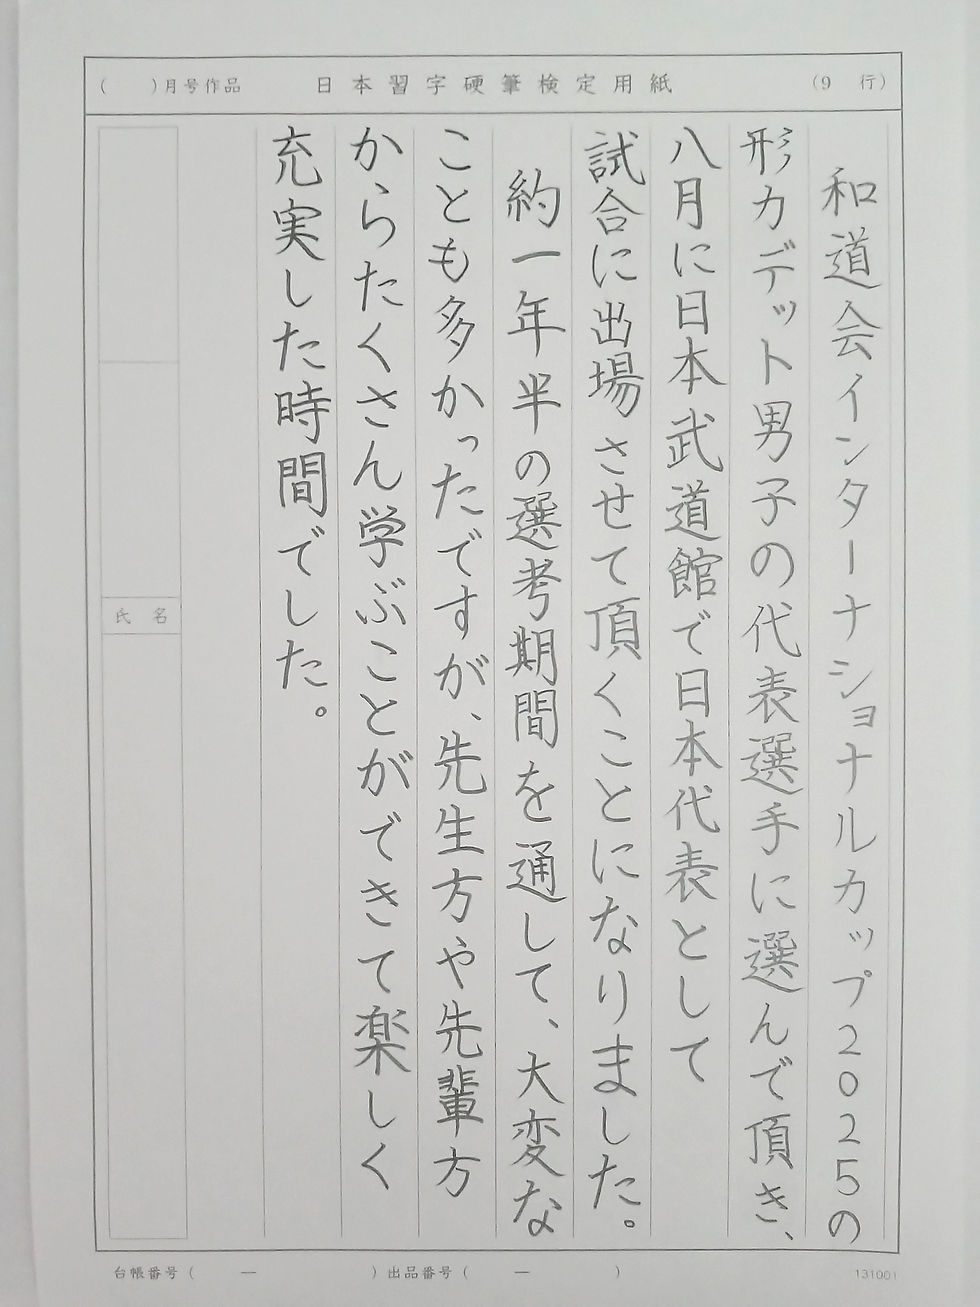 (　　)月号作品　　日本習字硬筆検定用紙　　(9　行)
和道会インターナショナルカップ2025の
形カデット男子の代表選手に選んで頂き、
八月に日本武道館で日本代表として
試合に出場させて頂くことになりました。
約一年半の選考期間を通して、大変な
ことも多かったですが、先生方や先輩方
からたくさん学ぶことができて楽しく
充実した時間でした。
氏名
台帳番号(　　―　　　　)出品番号(　　―　　　　)
131001